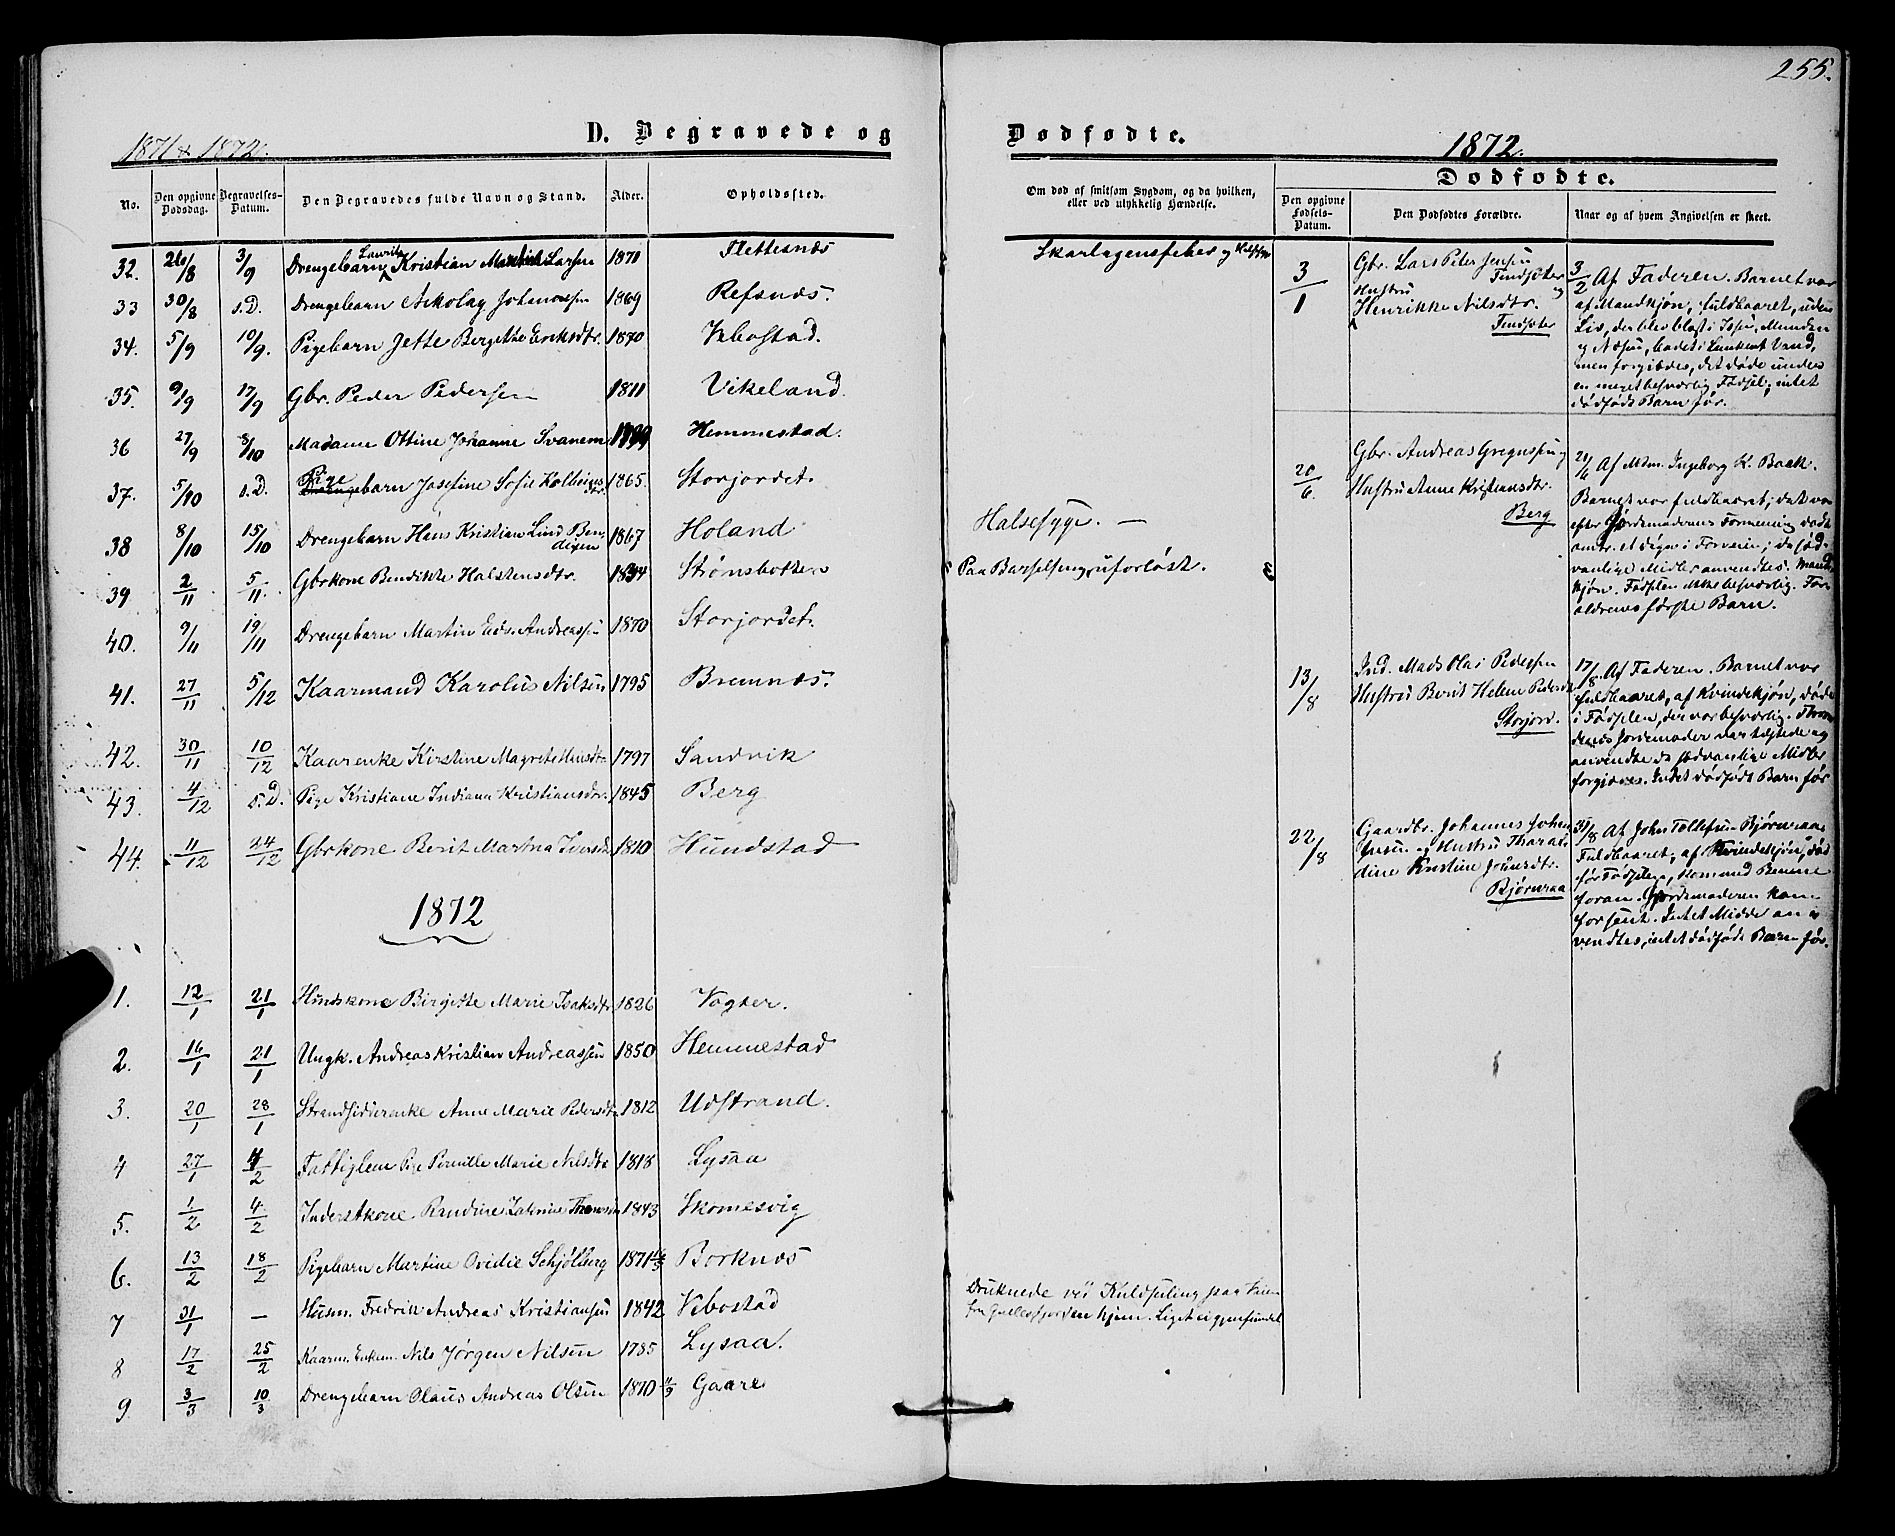 255.
1871 & 1872.
D. Begravede og
Dødfødte.
1872.
No.
Den opgivne Dødsdag.
Begravelses-Datum.
Den Begravedes fulde Navn og Stand.
Alder.
Opholdssted.
Om død af smitsom Sygdom, og da hvilken, eller ved ulykkelig Hændelse.
Dødfødte.
Den opgivne Fødsels-Datum.
Den Dødfødtes Forældre.
Naar og af hvem Angivelsen er skeet.
32. 26/8 3/9 Drengebarn Laurits Kristian Larsen 1871 Flettesnæs Skarlagensfeber og
33 30/8 s.D. Drengebarn Nikolay Johansen 1869 Refsnæs.
34. 5/9 10/9. Pigebarn Jette Bergitte Eriksdtr. 1870 Vebostad.
35. 9/9 17/9 Gbr. Peder Pedersen 1811 Vikeland.
36 27/9 8/10 Madame Ottine Johanne Svanem 1799 Hemmestad.
37. 5/10 s.D. Pigebarn Josefine Sofie Kolbeinsdtr. 1865. Storjordet.
38 8/10 15/10 Drengebarn Hans Kristian Lind Bendixen 1867 Holand Halsesyge. —
39 2/11 5/11 Gbrkone Bendikte Halstensdtr. 1834 Strømsbotten Paa Barselseng, uforløst.
40. 9/11 19/11 Drengebarn Martin Edv. Andreassen 1870 Storjordet.
41. 27/11 5/12 Kaarmand Karolus Nilsen 1795 Bremnæs.
42. 30/11 10/12 Kaarenke Kirstine Magrete Hansdtr 1797 Sandvik
43. 4/12 s.D. Pige Kristiane Indiana Kristiansdtr. 1845 Berg
44. 11/12 24/12 Gbrkone Berit Martha Iversdtr 1810 Hundstad
1872
1. 12/1 21/1 Husmkone Birgitte Marie Isaksdtr 1826 Vogter.
2. 16/1 21/1 Ungk. Andreas Kristian Andreassen 1850 Hemmestad
3. 20/1 28/1 Strandsidderenke Anne Marie Pedersdtr 1812 Udstrand.
4 27/1 4/2 Fattiglem Pige Pernille Marie Nilsdtr 1818 Lysaa
5. 1/2 4/2 Inderstkone Randine Katrine 1843 Skomesvig
6. 13/2 18/2 Pigebarn Martine Ovidie Schjølberg 1871 Borknæs
7 31/1 — Husm. Fredrik Andreas Kristiansen 1842 Vebostad Druknede ved Kuldseiling paa Veien
fra Gullesfjorden hjem. Liget ei gjenfundet
8 17/2 25/2 Kaarm. Enkem. Nils Jørgen Nilsen 1785 Lysaa.
9 3/3 10/3 Drengebarn Olaus Andreas Olsen 1870 Gaare
3/1
Gbr. Lars Peter Jensen
Tendsæter og
Hustru
Henrikke Nilsdtr.
Tendsæter
3/2 Af Faderen. Barnet var
af Mandkjøn, fuldbaaret, uden
Liv, der blev blæst i Issen, Munden
og Næsen, badet i lunkent Vand,
men forgjæves, det døde under
en meget besværlig Fødsel; intet
dødfødt Barn før.
20/6.
Gbr. Andreas Gregussen og
Hustru Anne Kristiansdtr.
Berg
21/6 Af Mdm. Ingeborg K. Baak.
Barnet var fuldbaaret; det var
efter Jordemoderens Formening dødt
omtr. et døgn i Forveien; de sæd-
vanlige Midler anvendtes. Mand-
kjøn. Fødslen ikke besværlig. For-
ældrenes første Barn.
13/8
Ind. Mads Olai Pedersen
Hustru Berit Helene Pedersdtr
Storjord.
17/8. Af Faderen. Barnet var
fuldbaaret, af Kvindekjøn, døde
i Fødslen, der var besværlig.
Jordemoder var tilstede og
anvendte de sædvanlige Midler
forgjæves. Intet dødfødt Barn før
22/8
Gaardbr. Johannes Johan-
nesen og Hustru Thoral-
dine Kristine
Bjørnraa
25/8 Af John Tollefsen Bjørnraa.
Fuldbaaret, af Kvindekjøn, død
før Fødslen, kommed Benene
foran. Jordemoderen kom
for sent. Intet Middel an-
vendtes, intet dødfødt Barn før.